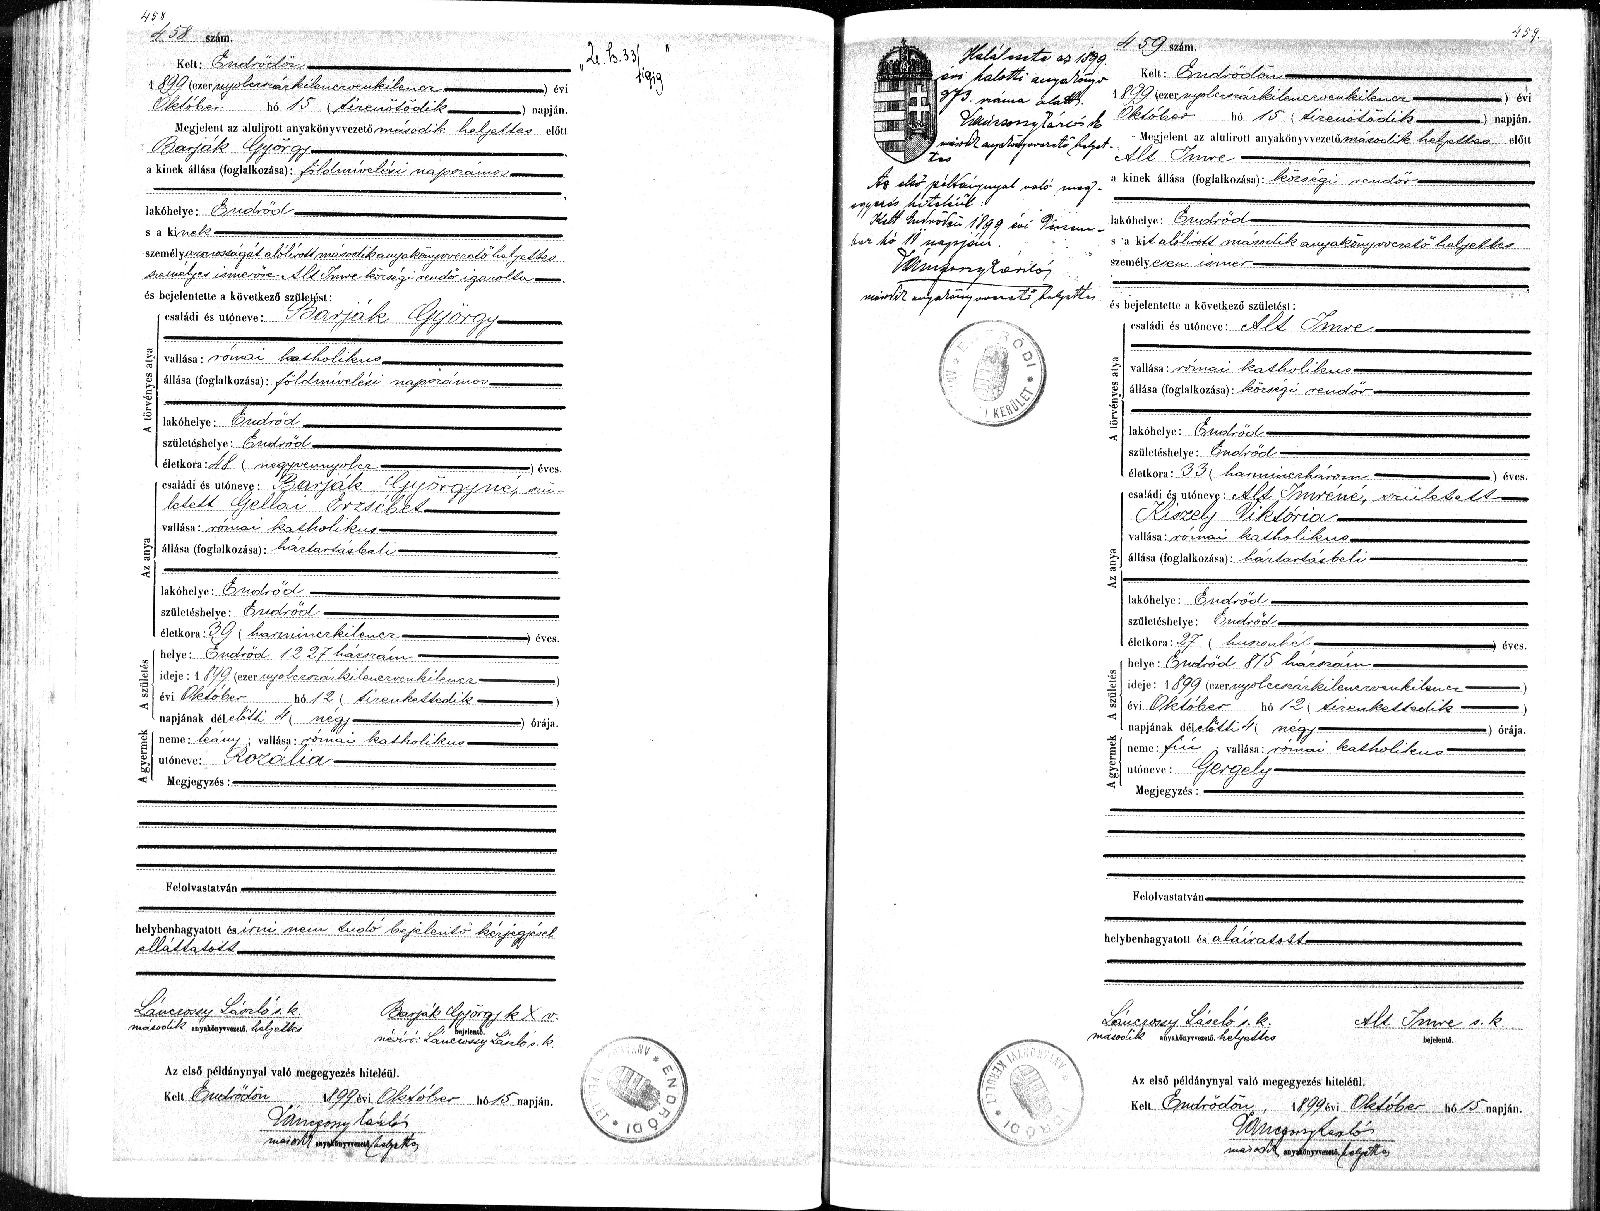 458
458 szám.
Kelt: Endrődön
1899 (ezernyolczszázkilenczvenkilencz) évi
Október hó 15 (tizenötödik) napján.
Megjelent az alulirott anyakönyvvezető második helyettes előtt
Barják György
a kinek állása (foglalkozása): földmívelési napszámos
lakóhelye: Endrőd
s a kinek
személyazonosságát alólirott második anyakönyvvezető helyettes
személyes ismerőse Alt Imre községi rendőr igazolta
és bejelentette a következő születést:
A törvényes atya
családi és utóneve: Barják György
vallása: római katholikus
állása (foglalkozása): földmívelési napszámos
lakóhelye: Endrőd
születéshelye: Endrőd
életkora: 48 (negyvennyolcz) éves.
Az anya
családi és utóneve: Barják Györgyné, szü-
letett Gellai Erzsébet
vallása: római katholikus
állása (foglalkozása): háztartásbeli
lakóhelye: Endrőd
születéshelye: Endrőd
életkora: 39 (harminczkilencz) éves.
A születés
helye: Endrőd 1227 házszám
ideje: 1899 (ezernyolczszázkilenczvenkilencz)
évi Október hó 12 (tizenkettedik)
napjának délelőtti 4 (négy) órája.
A gyermek
neme: leány; vallása: római katholikus
utóneve: Rozália
Megjegyzés:
Felolvastatván
helybenhagyatott és irni nem tudó bejelentő kézjegyével
elláttatott
Lánczossy László s. k. Barják György k X v.
második anyakönyvvezető helyettes bejelentő.
névíró: Lánczossy László s. k.
Az első példánynyal való megegyezés hiteléül.
Kelt Endrődön 1899 évi Október hó 15 napján.
második anyakönyvvezető helyettes
ENDRŐDI
459.
459 szám.
Halálozata az 1899
évi halotti anyakönyv
973. száma alatt.
második anyakönyvvezető helyet-
tes
Az első példánynyal való meg-
egyezés hiteléül.
Kelt Endrődön 1899 évi Decem-
ber hó 18 napján.
második anyakönyvvezető helyettes
KERÜLET
Kelt: Endrődön
1899 (ezernyolczszázkilenczvenkilencz) évi
Október hó 15 (tizenötödik) napján.
Megjelent az alulirott anyakönyvvezető második helyettes előtt
Alt Imre
a kinek állása (foglalkozása): községi rendőr
lakóhelye: Endrőd
s a kit alólirott második anyakönyvvezető helyettes
személyesen ismer
és bejelentette a következő születést:
A törvényes atya
családi és utóneve: Alt Imre
vallása: római katholikus
állása (foglalkozása): községi rendőr
lakóhelye: Endrőd
születéshelye: Endrőd
életkora: 33 (harminczhárom) éves.
Az anya
családi és utóneve: Alt Imréné, született
Kiszely Viktória
vallása: római katholikus
állása (foglalkozása): háztartásbeli
lakóhelye: Endrőd
születéshelye: Endrőd
életkora: 27 (huszonhét) éves.
A születés
helye: Endrőd 815 házszám
ideje: 1899 (ezernyolczszázkilenczvenkilencz)
évi Október hó 12 (tizenkettedik)
napjának délelőtti 4 (négy) órája.
A gyermek
neme: fiú vallása: római katholikus
utóneve: Gergely
Megjegyzés:
Felolvastatván
helybenhagyatott és aláíratott
Lánczossy László s. k. Alt Imre s. k
második anyakönyvvezető helyettes bejelentő.
Az első példánynyal való megegyezés hiteléül.
Kelt Endrődön, 1899 évi Október hó 15 napján.
második anyakönyvvezető helyettes